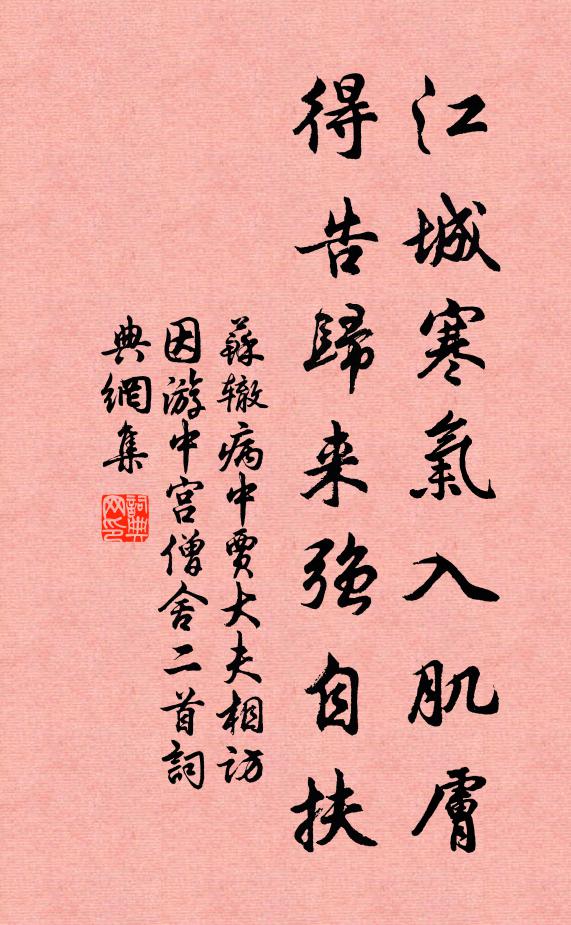 江城寒氣入肌膚
得告歸来强自扶
蘇辙病中賈大夫相訪
因游中宫僧舍二首詞
典網集
詞典
网印